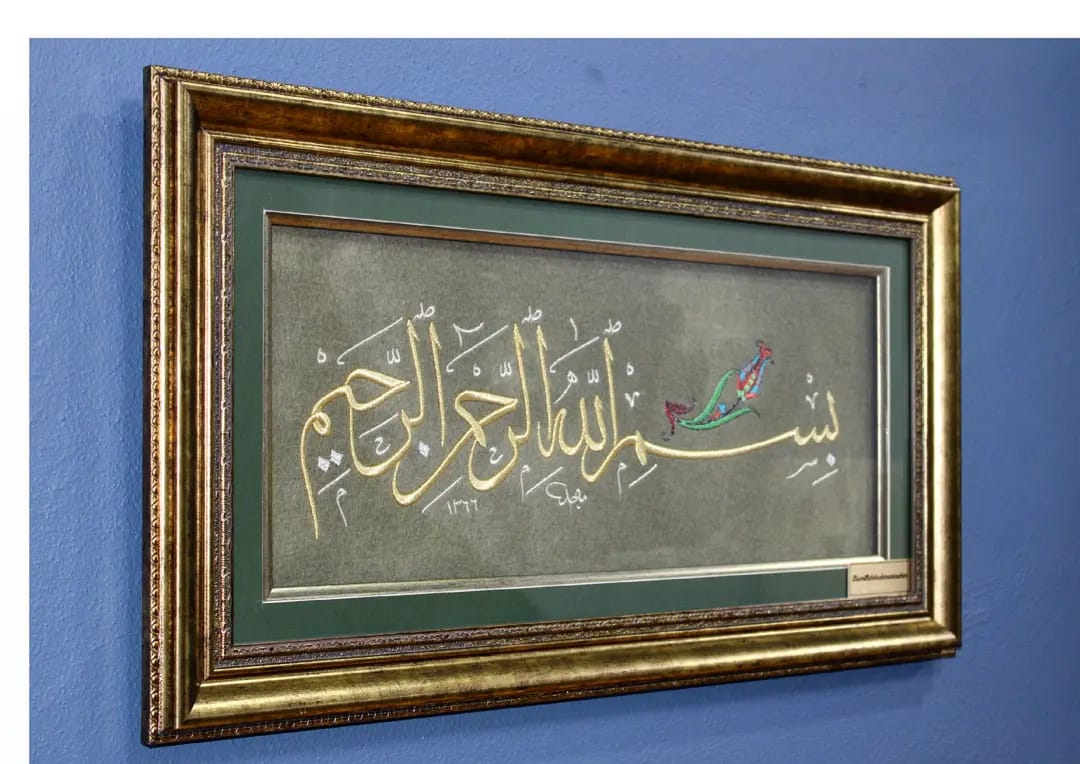 بِسْمِ اللهِ الرَّحْمنِ الرَّحِيمِ
ماجد
١٣٦٦